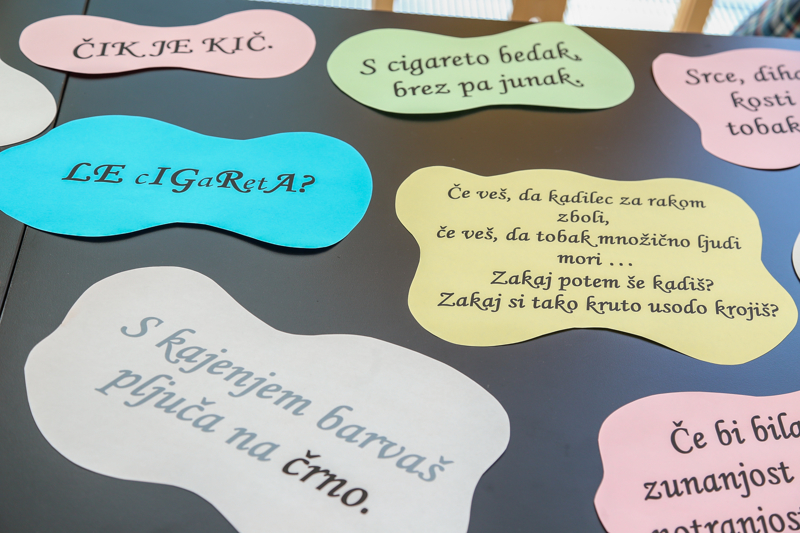 ČIK JE KIČ.
S cigareto bedak,
brez pa junak.
Srce,
kosti
LE cIGaRetA?
Če veš, da kadilec za rakom
zboli,
če veš, da tobak množično ljudi
mori ...
Zakaj potem še kadiš?
Zakaj si tako kruto usodo krojiš?
S kajenjem barvaš
pljuča na črno.
Če bi
zunanjost